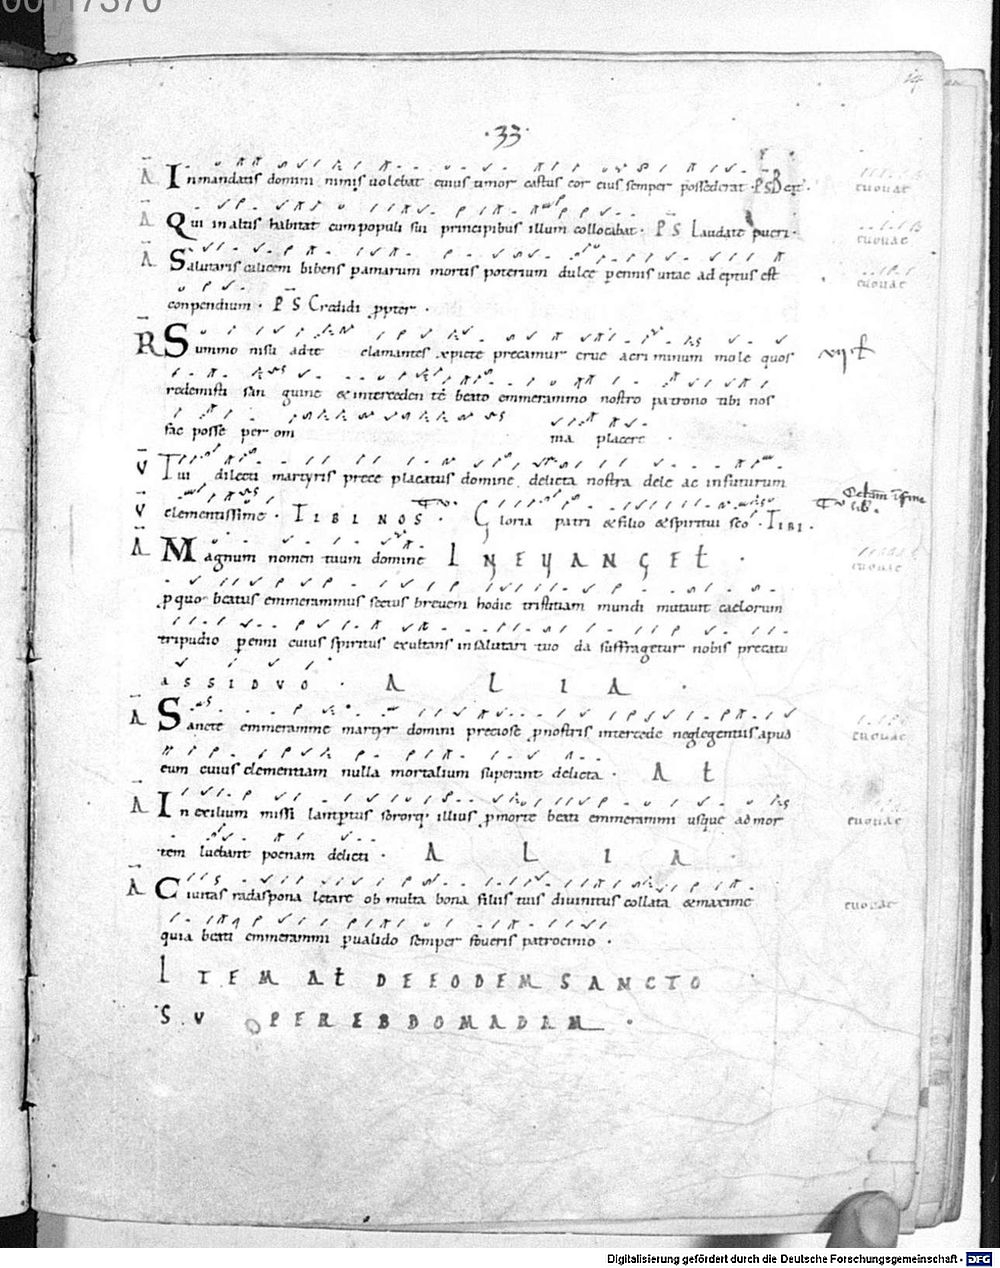 00117370
14
·33·
A In mandatis domini nimis uolebat cuius timor castus cor eius semper possederat · PS B · euouae
A Qui in altis habitat cum populi sui principibus illum collocabat · PS Laudate pueri · euouae
A Salutaris calicem bibens p amarum mortis poterium dulce pennis uitae ad eptus est euouae
conpendium · PS Credidi ppter ·
R Summo nisu ad te clamantes xpicte precamur erue aeri minum mole quos
redemisti san guine & interceden te beato emmerammo nostro patrono tibi nos
fac posse per om nia placere ·
V Tui dilecti martyris prece placatus domine delicta nostra dele ac in futurum
V clementissime · TIBI NOS · Gloria patri & filio & spiritui sco · TIBI ·
A Magnum nomen tuum domine IN EVANGEL · euouae
p quo beatus emmerammus sectus brevem hodie tristitiam mundi mutauit caelorum
tripudio penni cuius spiritus exultans in salutari tuo da suffragetur nobis precatu
ASSIDVO · A L I A ·
A Sancte emmeramme martyr domini preciose p nostris intercede neglegentiis apud euouae
eum cuius clementiam nulla mortalium superant delicta · A L
A In exilium missi lantptus sororq· illius p morte beati emmerammi usque ad mor euouae
tem luebant poenam delicti · A L I A
A Ciuitas radaspona letare ob multa bona filiis tuis diuinitus collata & maxime euouae
quia beati emmerammi pualido semper foueris patrocinio ·
ITEM AL DE EODEM SANCTO
S· V PER EBDOMADAM ·
Digitalisierung gefördert durch die Deutsche Forschungsgemeinschaft · DFG